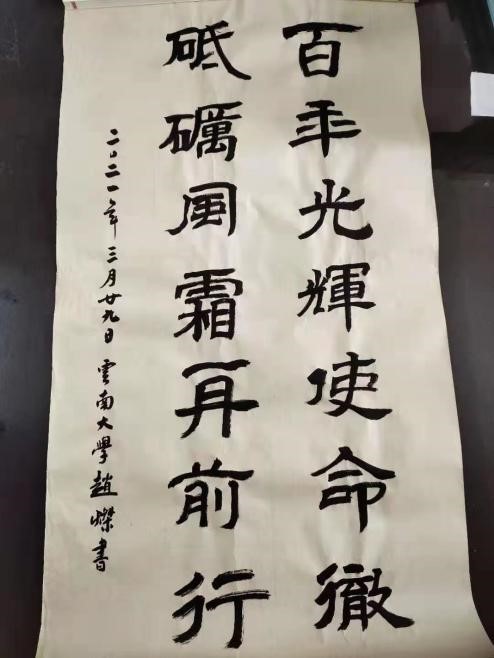 百年光輝使命徹
砥礪風霜再前行
二〇二一年三月廿九日雲南大學趙燦書